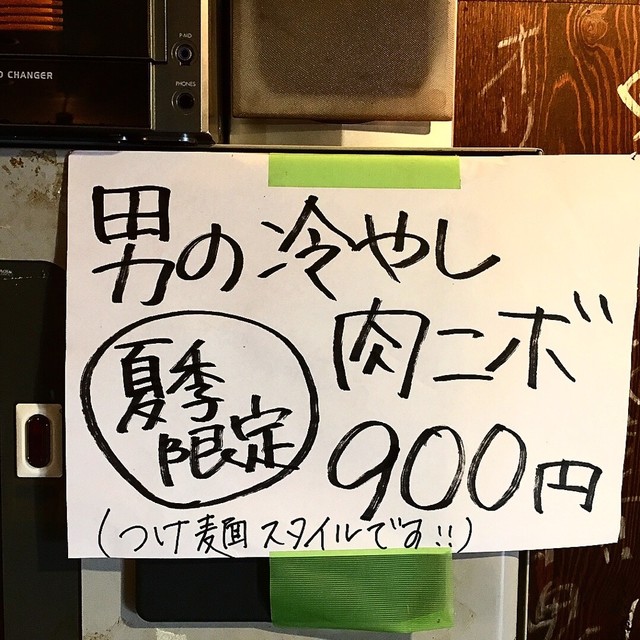 CHANGER
PHONES
男の冷やし
肉ニボ
夏季
限定
900円
(つけ麺スタイルです!!)